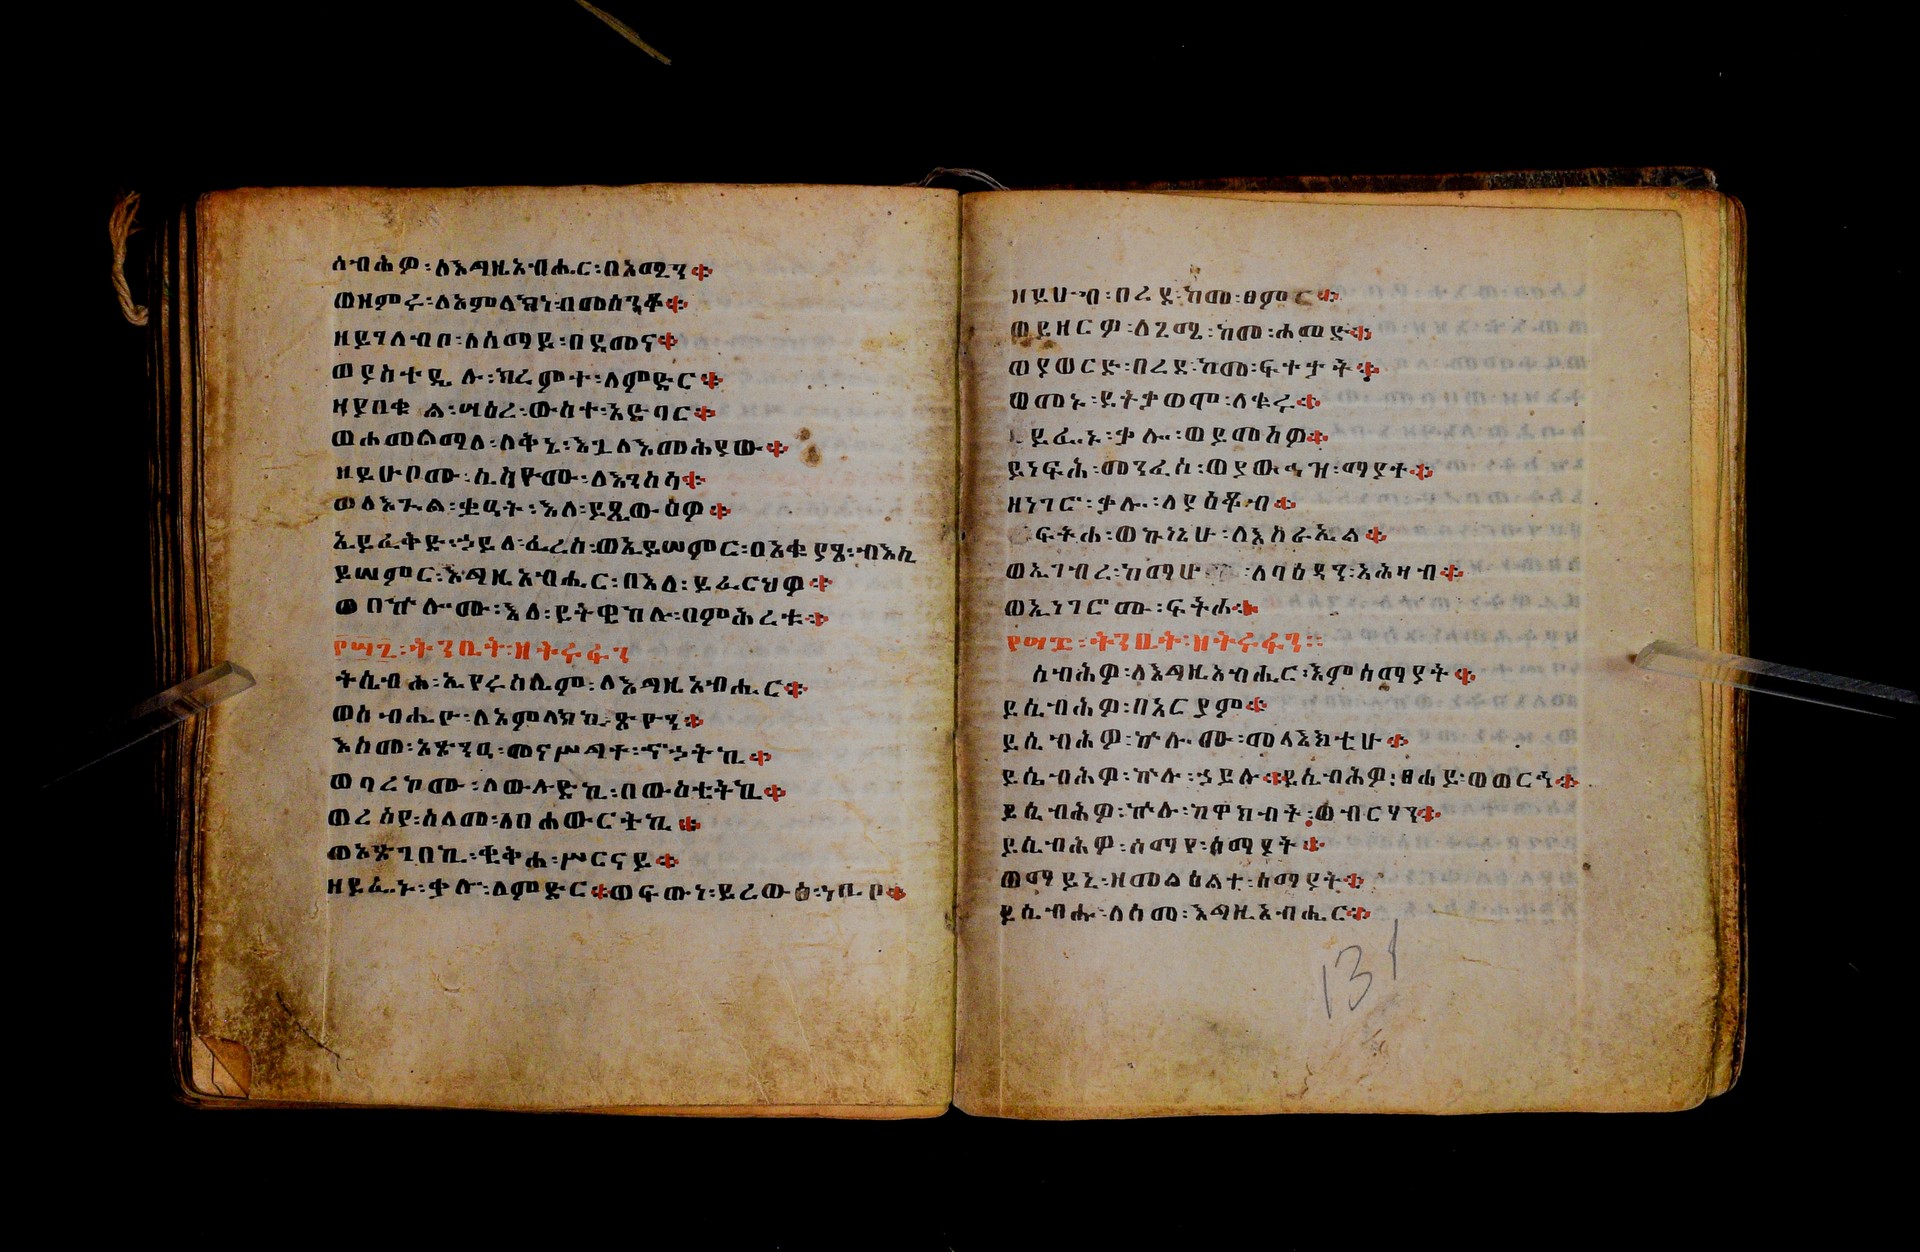 ሰብሕዎ፡ለእግዚአብሔር፡በአሚን፨
ወዘምሩ፡ለአምላክነ፡በመሰንቆ፨
ዘይገለብቦ፡ለሰማይ፡በደመና፨
ወያስተዴሉ፡ክረምተ፡ለምድር፨
ዘያበቁል፡ሣዕረ፡ውስተ፡አድባር፨
ወሐመልማለ፡ለቅኔ፡እጓለእመሕያው፨
ዘይሁቦሙ፡ሲሳዮሙ፡ለእንስሳ፨
ወለእጕል፡ቋዓት፡እለ፡ይጼውዕዎ፨
ኢይፈቅድ፡ኃይለ፡ፈረስ፡ወኢይሠምር፡በአቁያጼ፡ብእሲ
ይሠምር፡እግዚአብሔር፡በእለ፡ይፈርህዎ፨
ወበኵሎሙ፡እለ፡ይትዌከሉ፡በምሕረቱ፨
፻፵፯፡ትንቢት፡ዘትሩፋን
ትሴብሖ፡ኢየሩሳሌም፡ለእግዚአብሔር፨
ወሰብሒዮ፡ለአምላክኪ፡ጽዮን፨
እስመ፡አጽንዐ፡መናሥግተ፡ኆኃትኪ፨
ወባረኮሙ፡ለውሉድኪ፡በውስቴትኪ፨
ወረሰየ፡ሰላመ፡ለበሐውርትኪ፨
ወአጽገበኪ፡ቄቅሐ፡ሥርናይ፨
ዘይፌኑ፡ቃሎ፡ለምድር፨ወፍጡነ፡ይረውጽ፡ነቢቦ፨
ዘይሁብ፡በረደ፡ከመ፡ፀምር፨
ወይዘርዎ፡ለጊሜ፡ከመ፡ሐመድ፨
ወያወርድ፡በረደ፡ከመ፡ፍተታት፨
ወመኑ፡ይትቃወሞ፡ለቁሩ፨
ይፌኑ፡ቃሎ፡ወይመስዎ፨
ይነፍሕ፡መንፈሰ፡ወያውኅዝ፡ማያተ፨
ዘነገሮ፡ቃሎ፡ለያዕቆብ፨
ፍትሐ፡ወኵነኔሁ፡ለእስራኤል፨
ወኢገብረ፡ከማሁ፡ለባዕዳን፡አሕዛብ፨
ወኢነገሮሙ፡ፍትሐ፨
፻፵፰፡ትንቢት፡ዘትሩፋን፡፡
ሰብሕዎ፡ለእግዚአብሔር፡እምሰማያት፨
ይሴብሕዎ፡በአርያም፨
ይሴብሕዎ፡ኵሎሙ፡መላእክቲሁ፨
ይሴብሕዎ፡ኵሉ፡ኃይሉ፨ይሴብሕዎ፡ፀሐይ፡ወወርኅ፨
ይሴብሕዎ፡ኵሉ፡ከዋክብት፡ወብርሃን፨
ይሴብሕዎ፡ሰማየ፡ሰማያት፨
ወማይኒ፡ዘመልዕልተ፡ሰማያት፨
ይሴብሑ፡ለስመ፡እግዚአብሔር፨
131